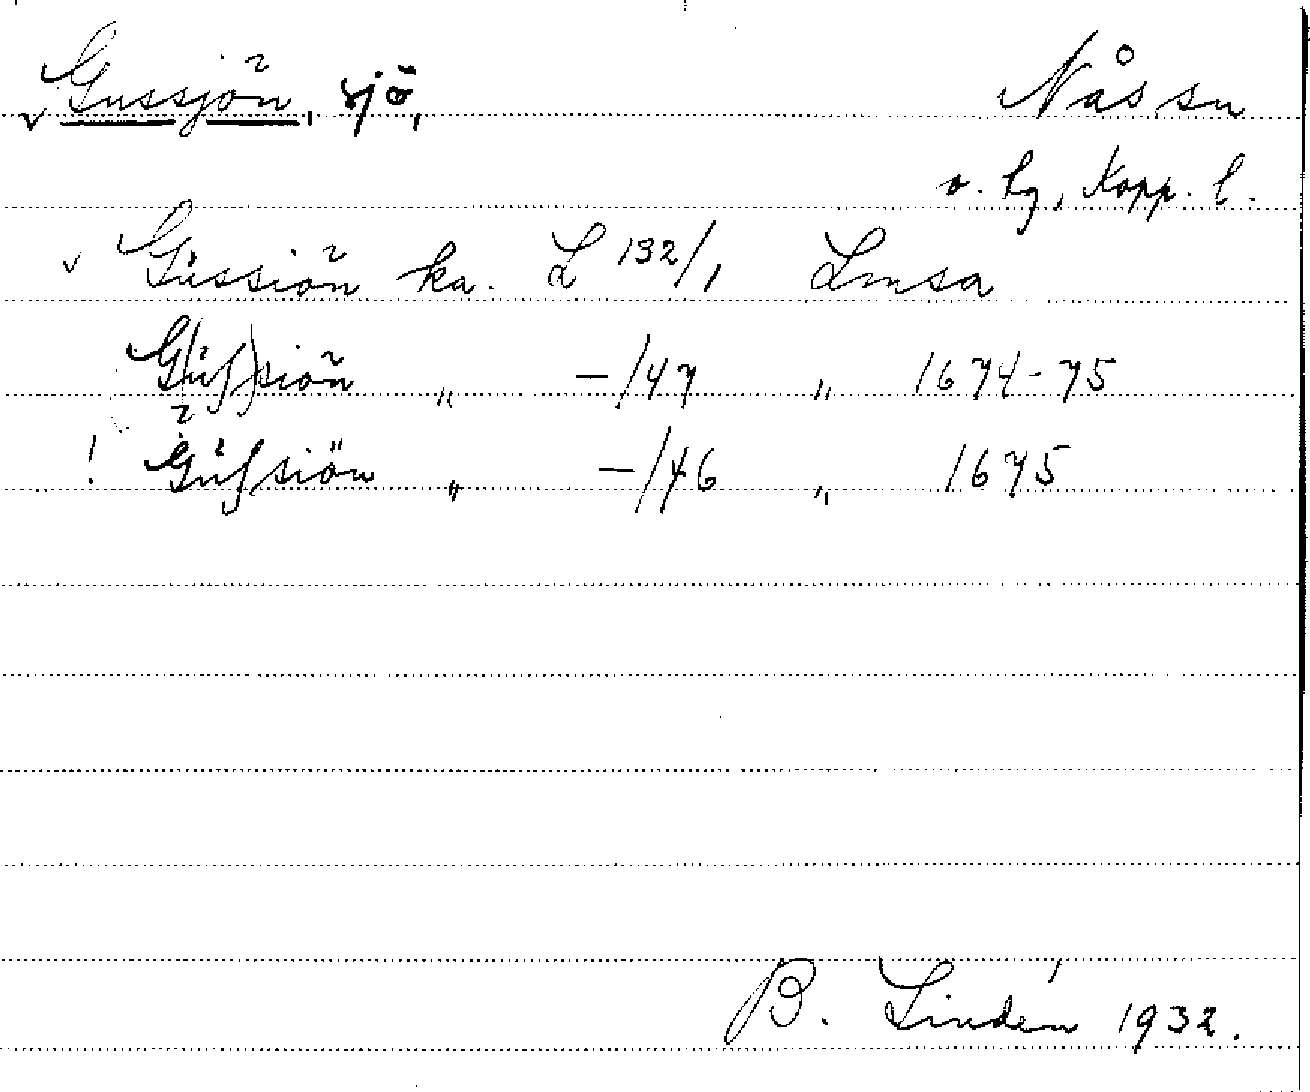 v Gussjön, sjö, Nås sn
v. hg, Kopp. l.
v Gussiön ka. L 132/1 Lmsa
G(uſ)siön „ -/47 „ 1674-75
! Guſsiön „ -/46 „ 1675
B. Lindén 1932.